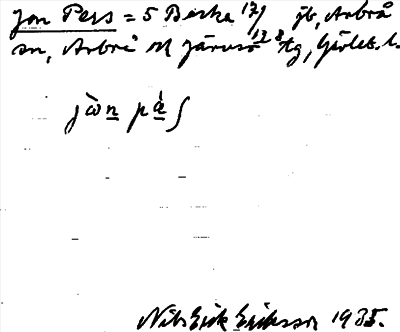 Jon Pers = 5 Berka 17/ jb, Arbrå
sn, Arbrå och Järvsö tg, Gävleb. l.
jòn pà ʃ
Nils Erik Eriksson 1935.